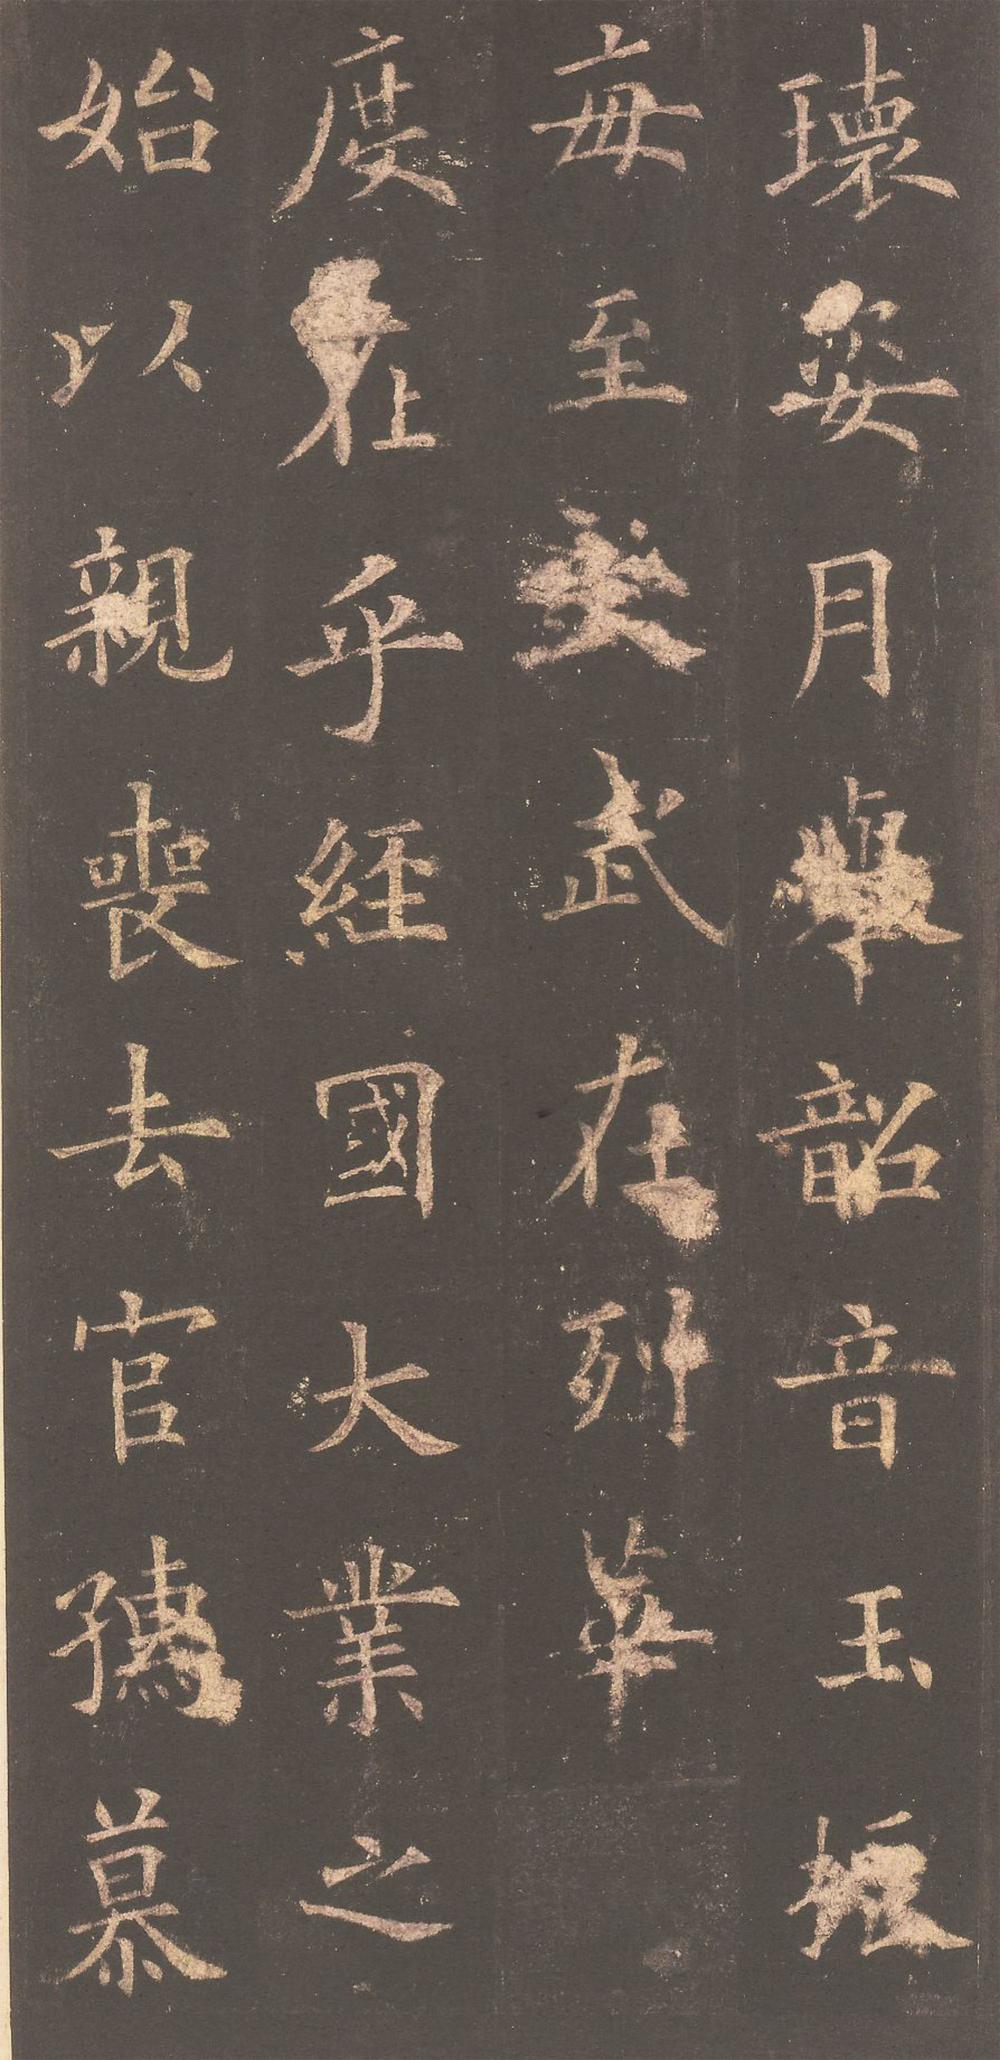 瓌姿月舉韶音玉振
每至武在列華
度乎經國大業之
始以親喪去官孺慕